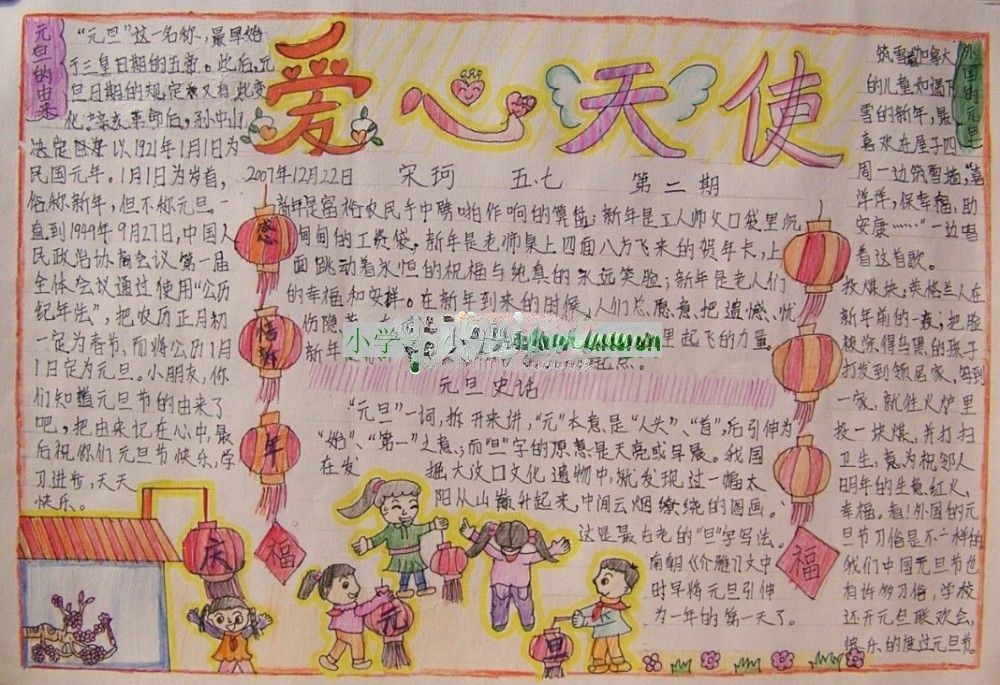 元旦的由来
“元旦”这一名称，最早始
于三皇日期的五帝。此后，元
旦日期的规定
化。辛亥革命后，孙中山
决定 以1921年1月1日为
民国元年。1月1日为岁首，
俗称新年，但不称元旦。一
直到1949年9月27日，中国人
民政治协商会议第一届
全体会议通过使用“公历
纪年法”，把农历正月初
一定为春节，而将公历1月
1日定为元旦。小朋友，你
们知道元旦节的由来了
吧，把由来记在心中，最
后祝你们元旦节快乐，学
习进步，天天
快乐。
爱心天使
2007年12月22日 宋珂 五.七 第二期
新年是富裕农民手中噼啪作响的算盘；新年是工人师父口袋里沉
甸甸的工资袋。新年是老师桌上四面八方飞来的贺年卡，上
面跳动着永恒的祝福与纯真的永远笑脸；新年是老人们
的幸福和安祥。在新年到来的时候，人们总愿意把遗憾、忧
伤隐
新年 里起飞的力量。
小学
元旦史话
“元旦”一词，拆开来讲，“元”本意是“人头”、“首”，后引伸为
“始”、“第一”之意；而“旦”字的原意是天亮或早晨。我国
在发掘大汶口文化遗物中，就发现过一幅太
阳从山巅升起来，中间云烟缭绕的图画。
这是最古老的“旦”字写法。
南朝《介雅》文中
时早将元旦引伸
为一年的第一天了。
感
悟
新
年
福
福
庆
元
旦
外国的元旦
筑雪 加拿大
的儿童如遇下
雪的新年，最
喜欢在屋子四
周一边筑雪墙，“喜
洋洋，保幸福，助
安康……”一边唱
着这首歌。
投煤块：英格兰人在
新年前的一夜；把脸
被涂得乌黑的孩子
打发到邻居家，每到
一家，就往火炉里
投一块煤，并打扫
卫生，意为祝邻人
明年的生意红火，
幸福。看！外国的元
旦节习俗是不一样的
我们中国元旦节也
有许多习俗，学校
还开元旦联欢会，
快乐的度过元旦节。